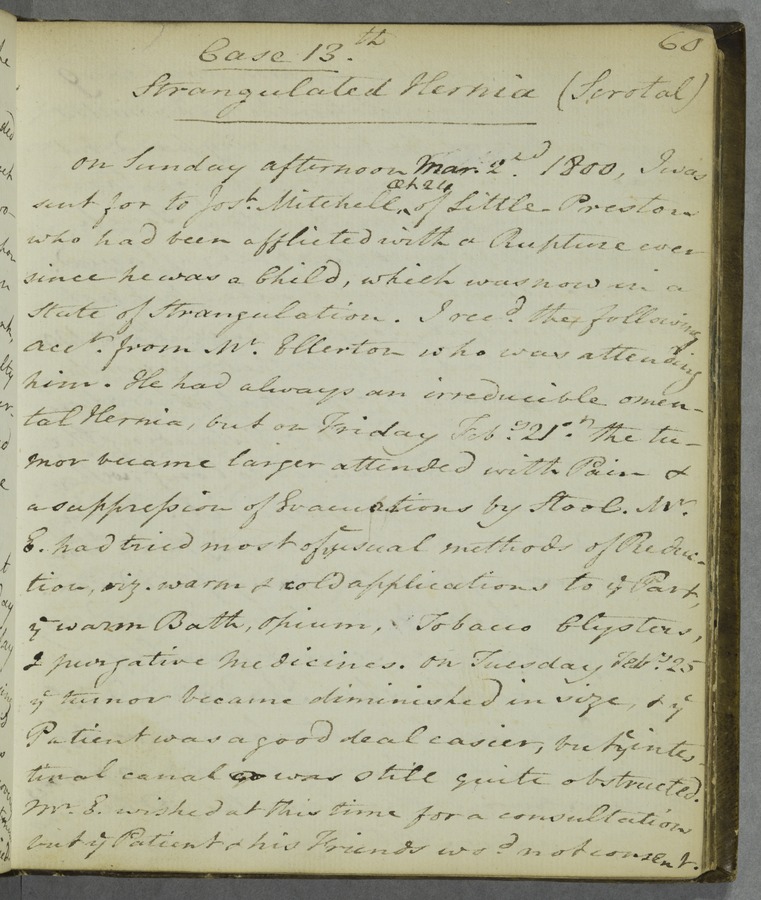 60
Case 13.th
Strangulated Hernia (Scrotal)
On Sunday afternoon Mar. 2nd. 1800, I was
Æt. 24
sent for to Josh. Mitchell, ^ of Little Preston
who had been afflicted with a Rupture ever
since he was a Child, which was now in a
State of Strangulation. I recd. the following
acct. from Mr. Ellerton who was attending
him. He had always an irreducible omen-
tal Hernia, but on Friday Feby. 21st. the tu-
mor became larger attended with Pain &
a suppression of Evacuations by Stool. Mr.
E. had tried most of ye usual methods of Reduc-
tion, viz. warm & cold applications to ye Part,
ye warm Bath, opium, Tobacco Clysters,
& purgative medicines. On Tuesday Feby. 25
ye tumor became diminished in size, & ye
Patient was a good deal easier, but ye intes-
tinal canal was still quite obstructed.
Mr. E. wished at this time for a consultation
but ye Patient & his Friends wod. not consent.